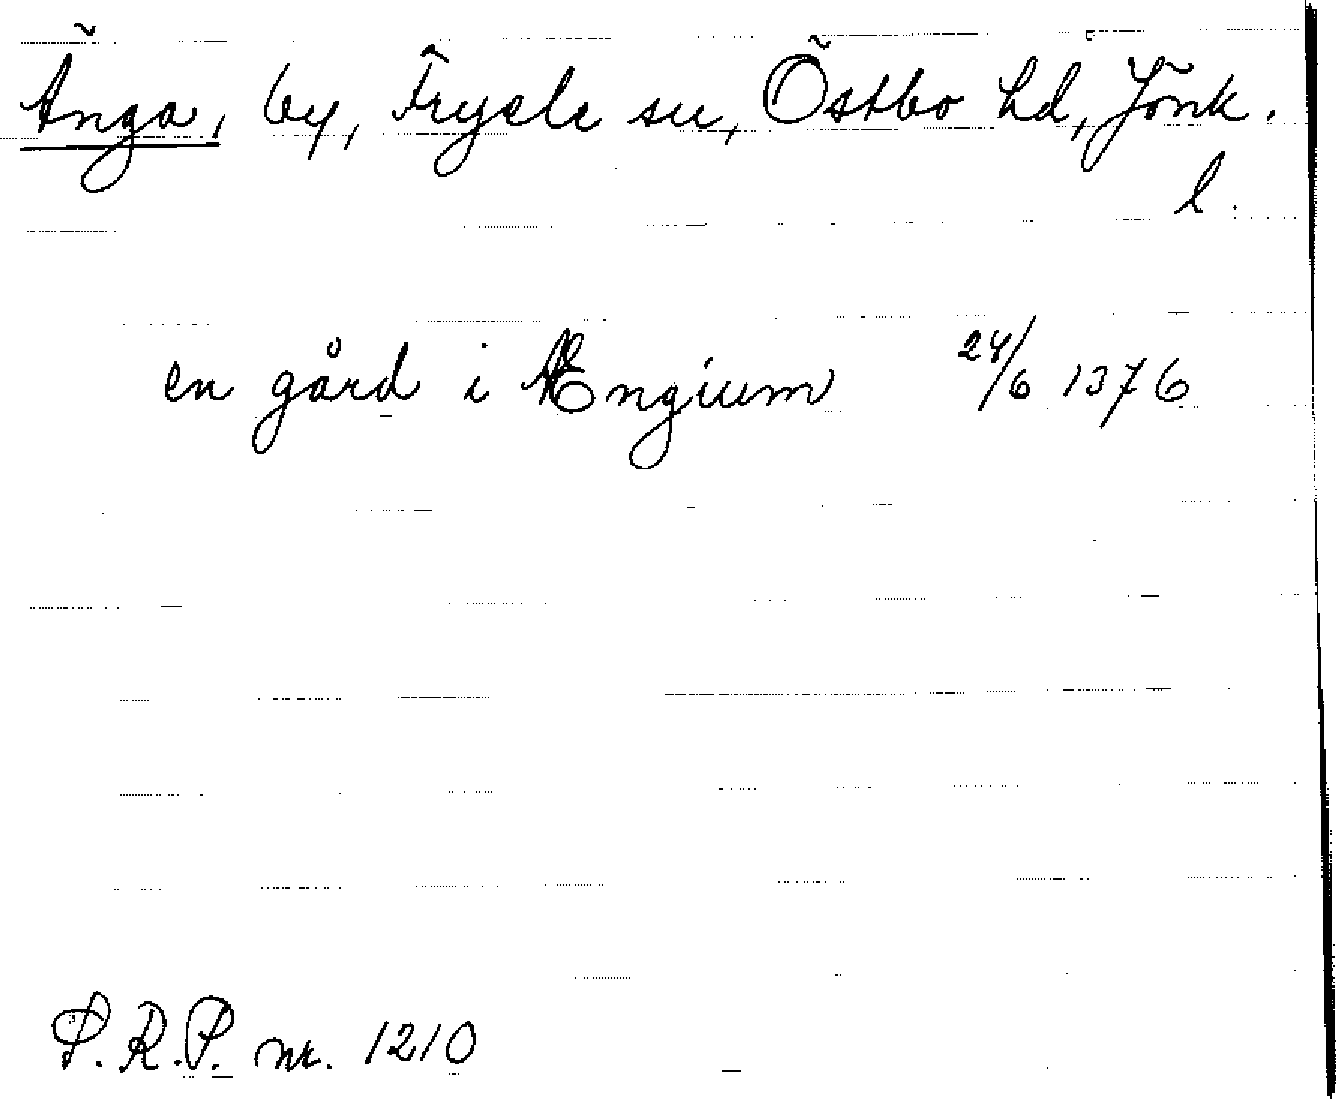 Änga, by, Fryele sn, Östbo hd, Jönk.
l.
en gård i Ængium 24/6 1376
P.R.P. nr. 1210